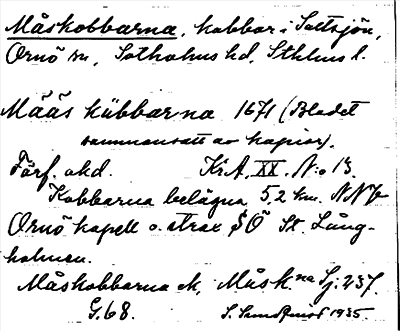 Måskobbarna, kobbar i Saltsjön,
Ornö sn, Sotholms hd, Sthlms l.
Måås kübbarna 1671 (Bladet
sammansatt av kopior).
Förf. okd. KrA, XX. N:o 13.
Kobbarna belägna 5,2 km. NNV
Ornö kapell o. strax SÖ St. Lång-
holmen.
Måskobbarna ek, Måsk.na Sj. 237.
G. 68. S. Sundqvist 1935.